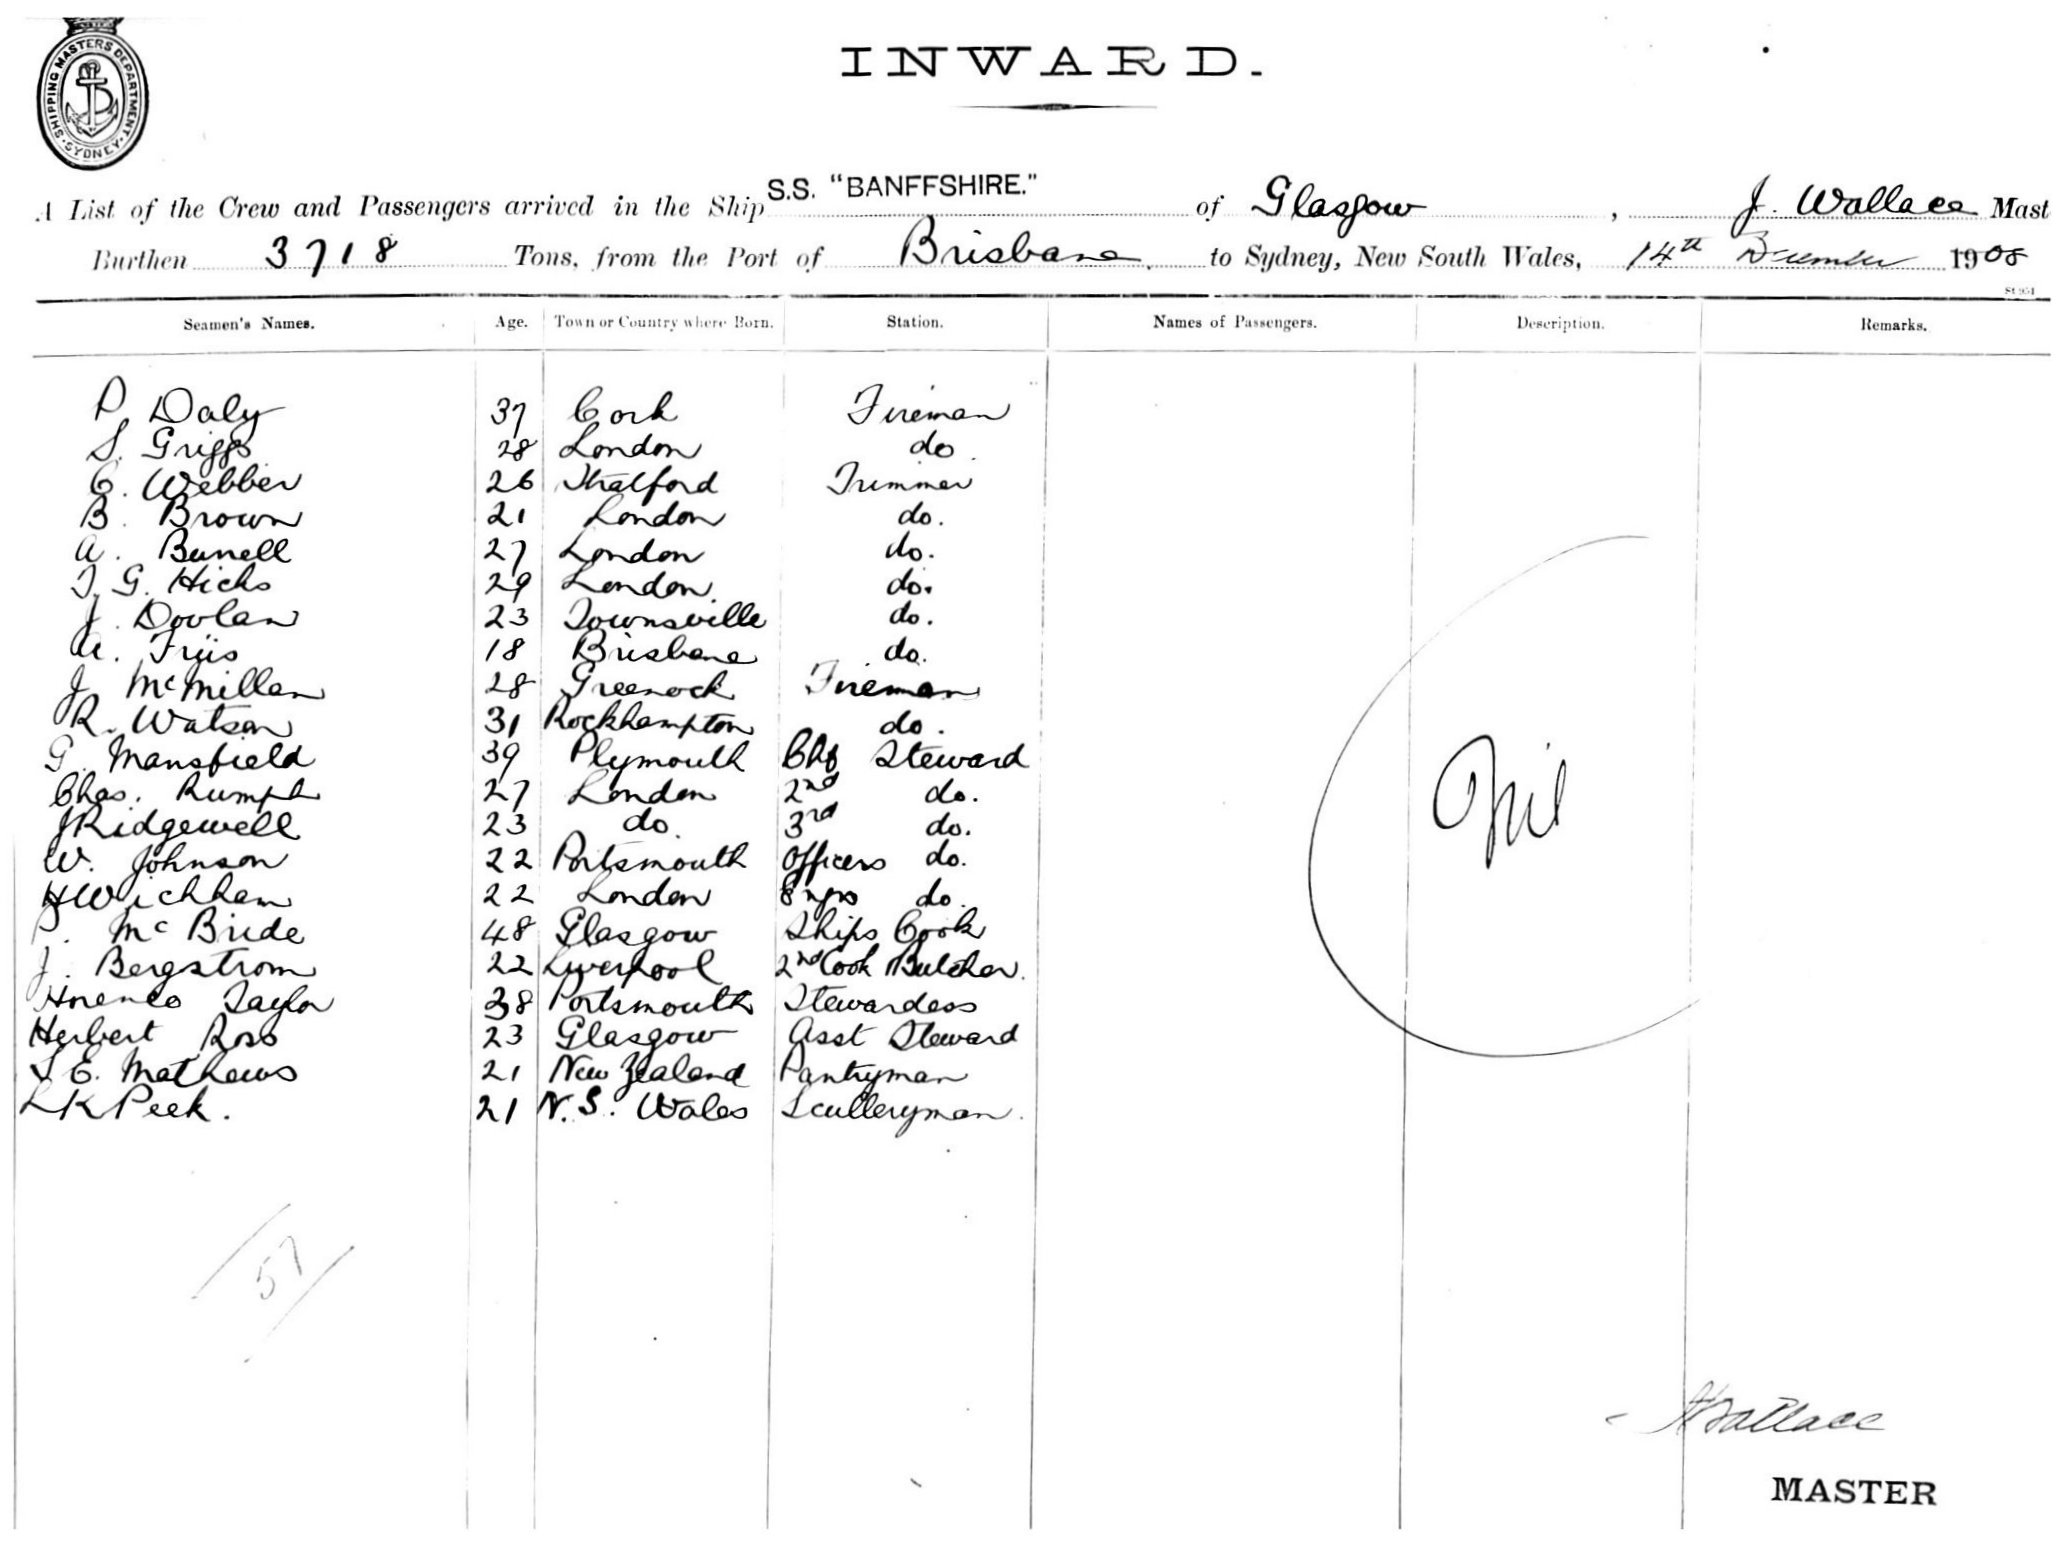 SHIPPING MASTERS DEPARTMENT
SYDNEY
INWARD.
A List of the Crew and Passengers arrived in the Ship S.S. "BANFFSHIRE." of Glasgow, J. Wallace Mast
Burthen 3718 Tons, from the Port of Brisbane to Sydney, New South Wales, 14th December 1908
Seamen's Names. Age. Town or Country where Born. Station. Names of Passengers. Description. Remarks.
P. Daly 37 Cork Fireman
S. Griggs 28 London do
C. Webber 26 Stratford Trimmer
B. Brown 21 London do.
A. Bunell 27 London do.
T. G. Hicks 29 London do.
J. Doolan 23 Townsville do.
A. Friis 18 Brisbane do.
J. McMillan 28 Greenock Fireman
R. Watson 31 Rockhampton do.
G. Mansfield 39 Plymouth Chf Steward
Chas. Rumph 27 London 2nd do.
J Ridgewell 23 do. 3rd do.
W. Johnson 22 Portsmouth Officers do.
H Wickham 22 London Engrs do
McBride 48 Glasgow Ships Cook
J. Bergstrom 22 Liverpool 2nd Cook Butcher.
Taylor 38 Portsmouth Stewardess
Herbert Ross 23 Glasgow Asst Steward
S E. Mathews 21 New Zealand Pantryman
L K Peek. 21 N. S. Wales Sculleryman.
Nil
57
Wallace
MASTER